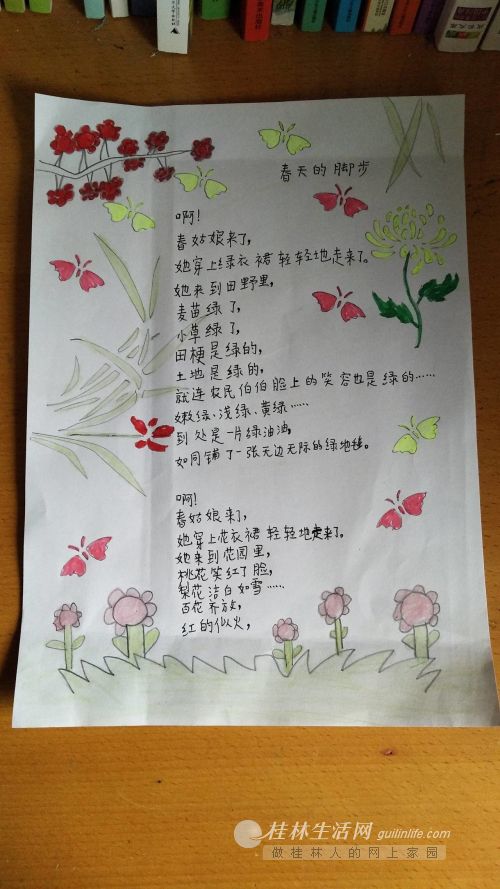 春天的脚步
啊!
春姑娘来了,
她穿上绿衣裙轻轻地走来了。
她来到田野里,
麦苗绿了,
小草绿了,
田梗是绿的,
土地是绿的,
就连农民伯伯脸上的笑容也是绿的……
嫩绿、浅绿、黄绿……
到处是一片绿油油,
如同铺了一张无边无际的绿地毯。
啊!
春姑娘来了,
她穿上花衣裙轻轻地走来了。
她来到花园里,
桃花笑红了脸,
梨花洁白如雪……
百花齐放,
红的似火,
桂林生活网 guilinlife.com
做桂林人的网上家园